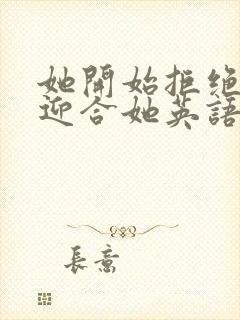 她開始拒絕
迎合她英語
長意